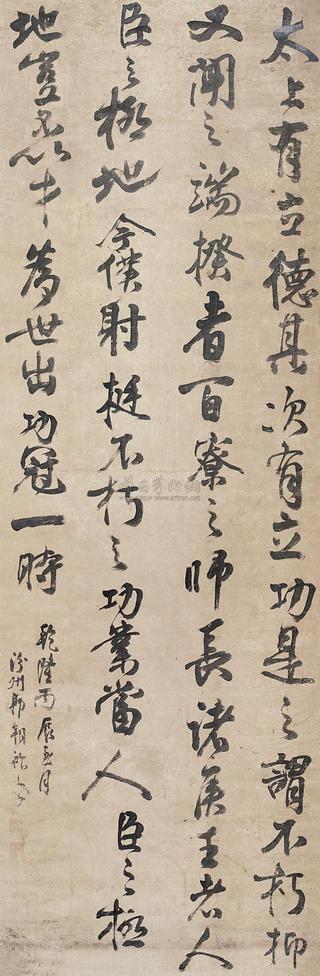 太上有立德其次有立功是之謂不朽抑
又聞之端揆者百寮之師長諸侯王者人
臣之極地今僕射挺不朽之功業當人臣之極
地豈不以才為世出功冠一時
乾隆丙辰五月
汾州